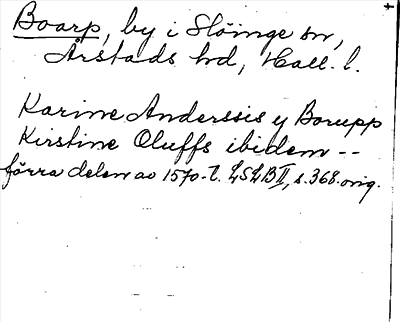 Boarp, by i Slöinge sn,
Årstads hd, Hall. l.
Karine Anderssis y Borupp
Kirstine Oluffs ibidem --
förra delen av 1570-t. LSLB II, s. 368. orig.